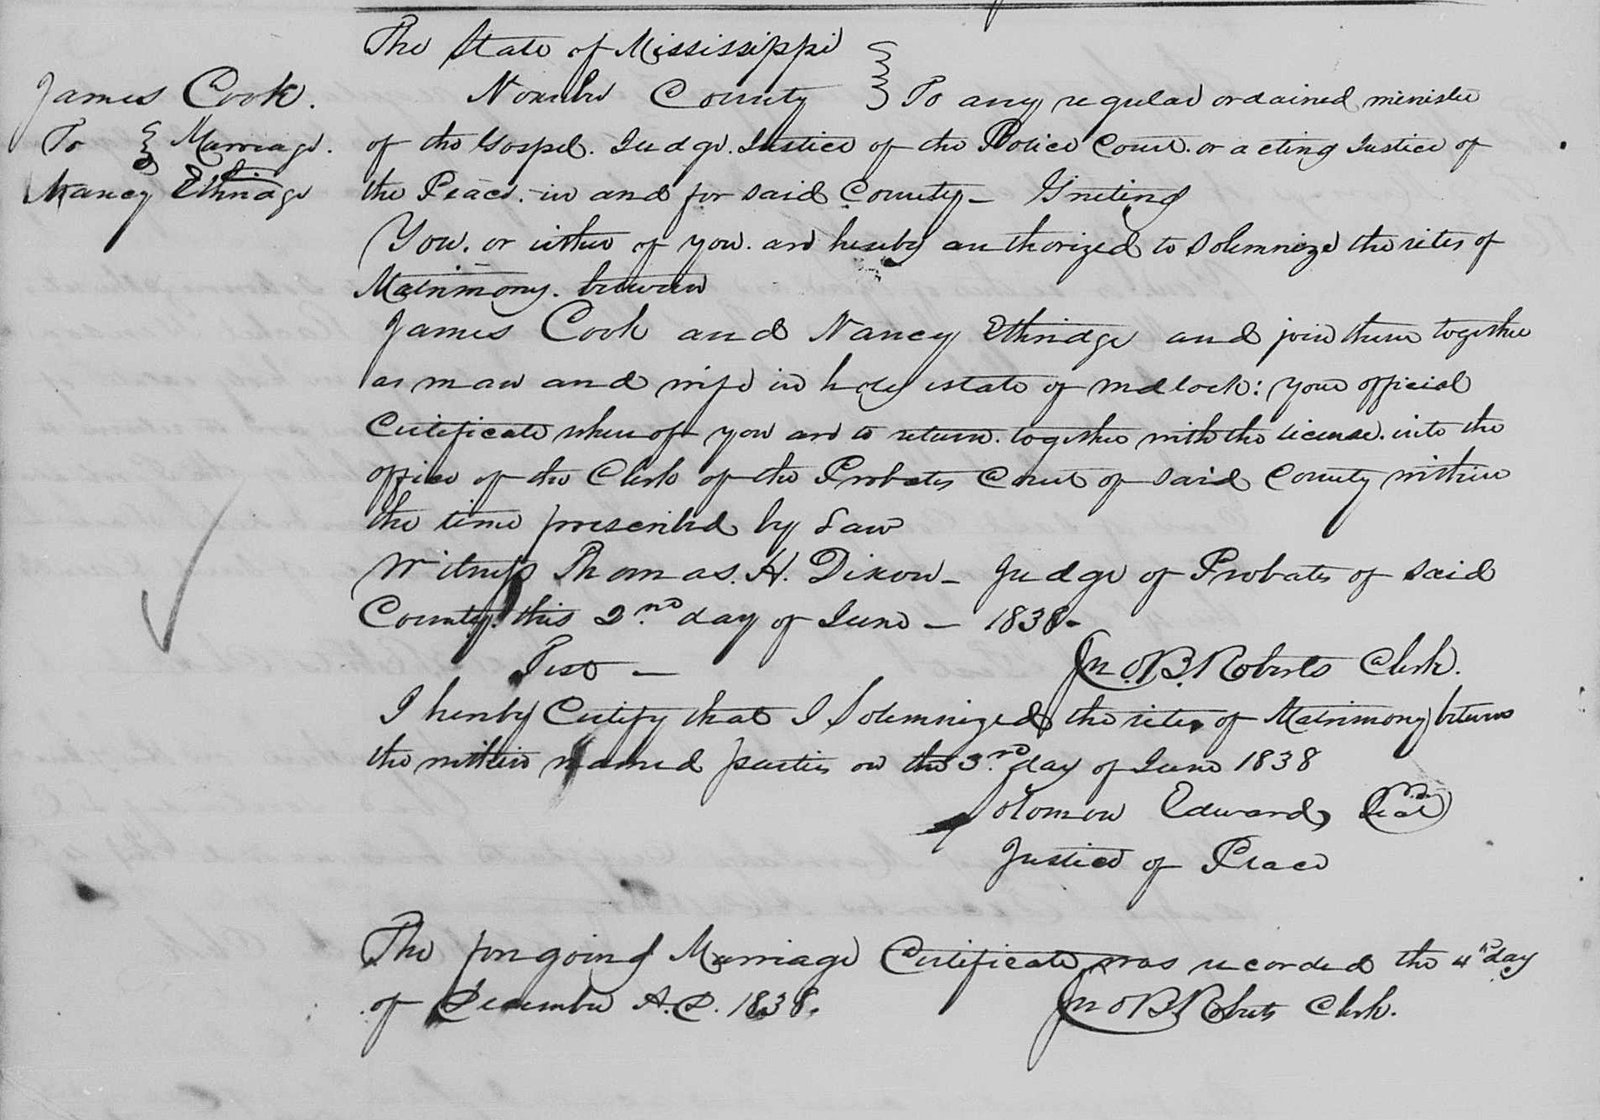 The State of Mississippi
Noxubee County } To any regular ordained minister
James Cook.
To } Marriage.
Nancy Ethridge
of the Gospel. Judge. Justice of the Police Court. or acting Justice of
the Peace. in and for said County — Greeting
You. or either of you. are hereby authorized to solemnize the rites of
Matrimony. between
James Cook and Nancy Ethridge and join them together
as man and wife in holy estate of Wedlock: your official
Certificate whereof you are to return. together with the license. into the
office of the Clerk of the Probate Court of said County within
the time prescribed by Law
Witness Thomas. H. Dixon — Judge of Probate of said
County. this 2.nd day of June — 1838.
Test — Jno B. Roberts Clerk.
I hereby Certify that I Solemnized the rites of Matrimony between
the within named parties on the 3.rd day of June 1838
Solomon Edwards Seal
Justice of Peace
The foregoing Marriage Certificate was recorded the 4th day
of December A.D. 1838. Jno B Roberts Clerk.